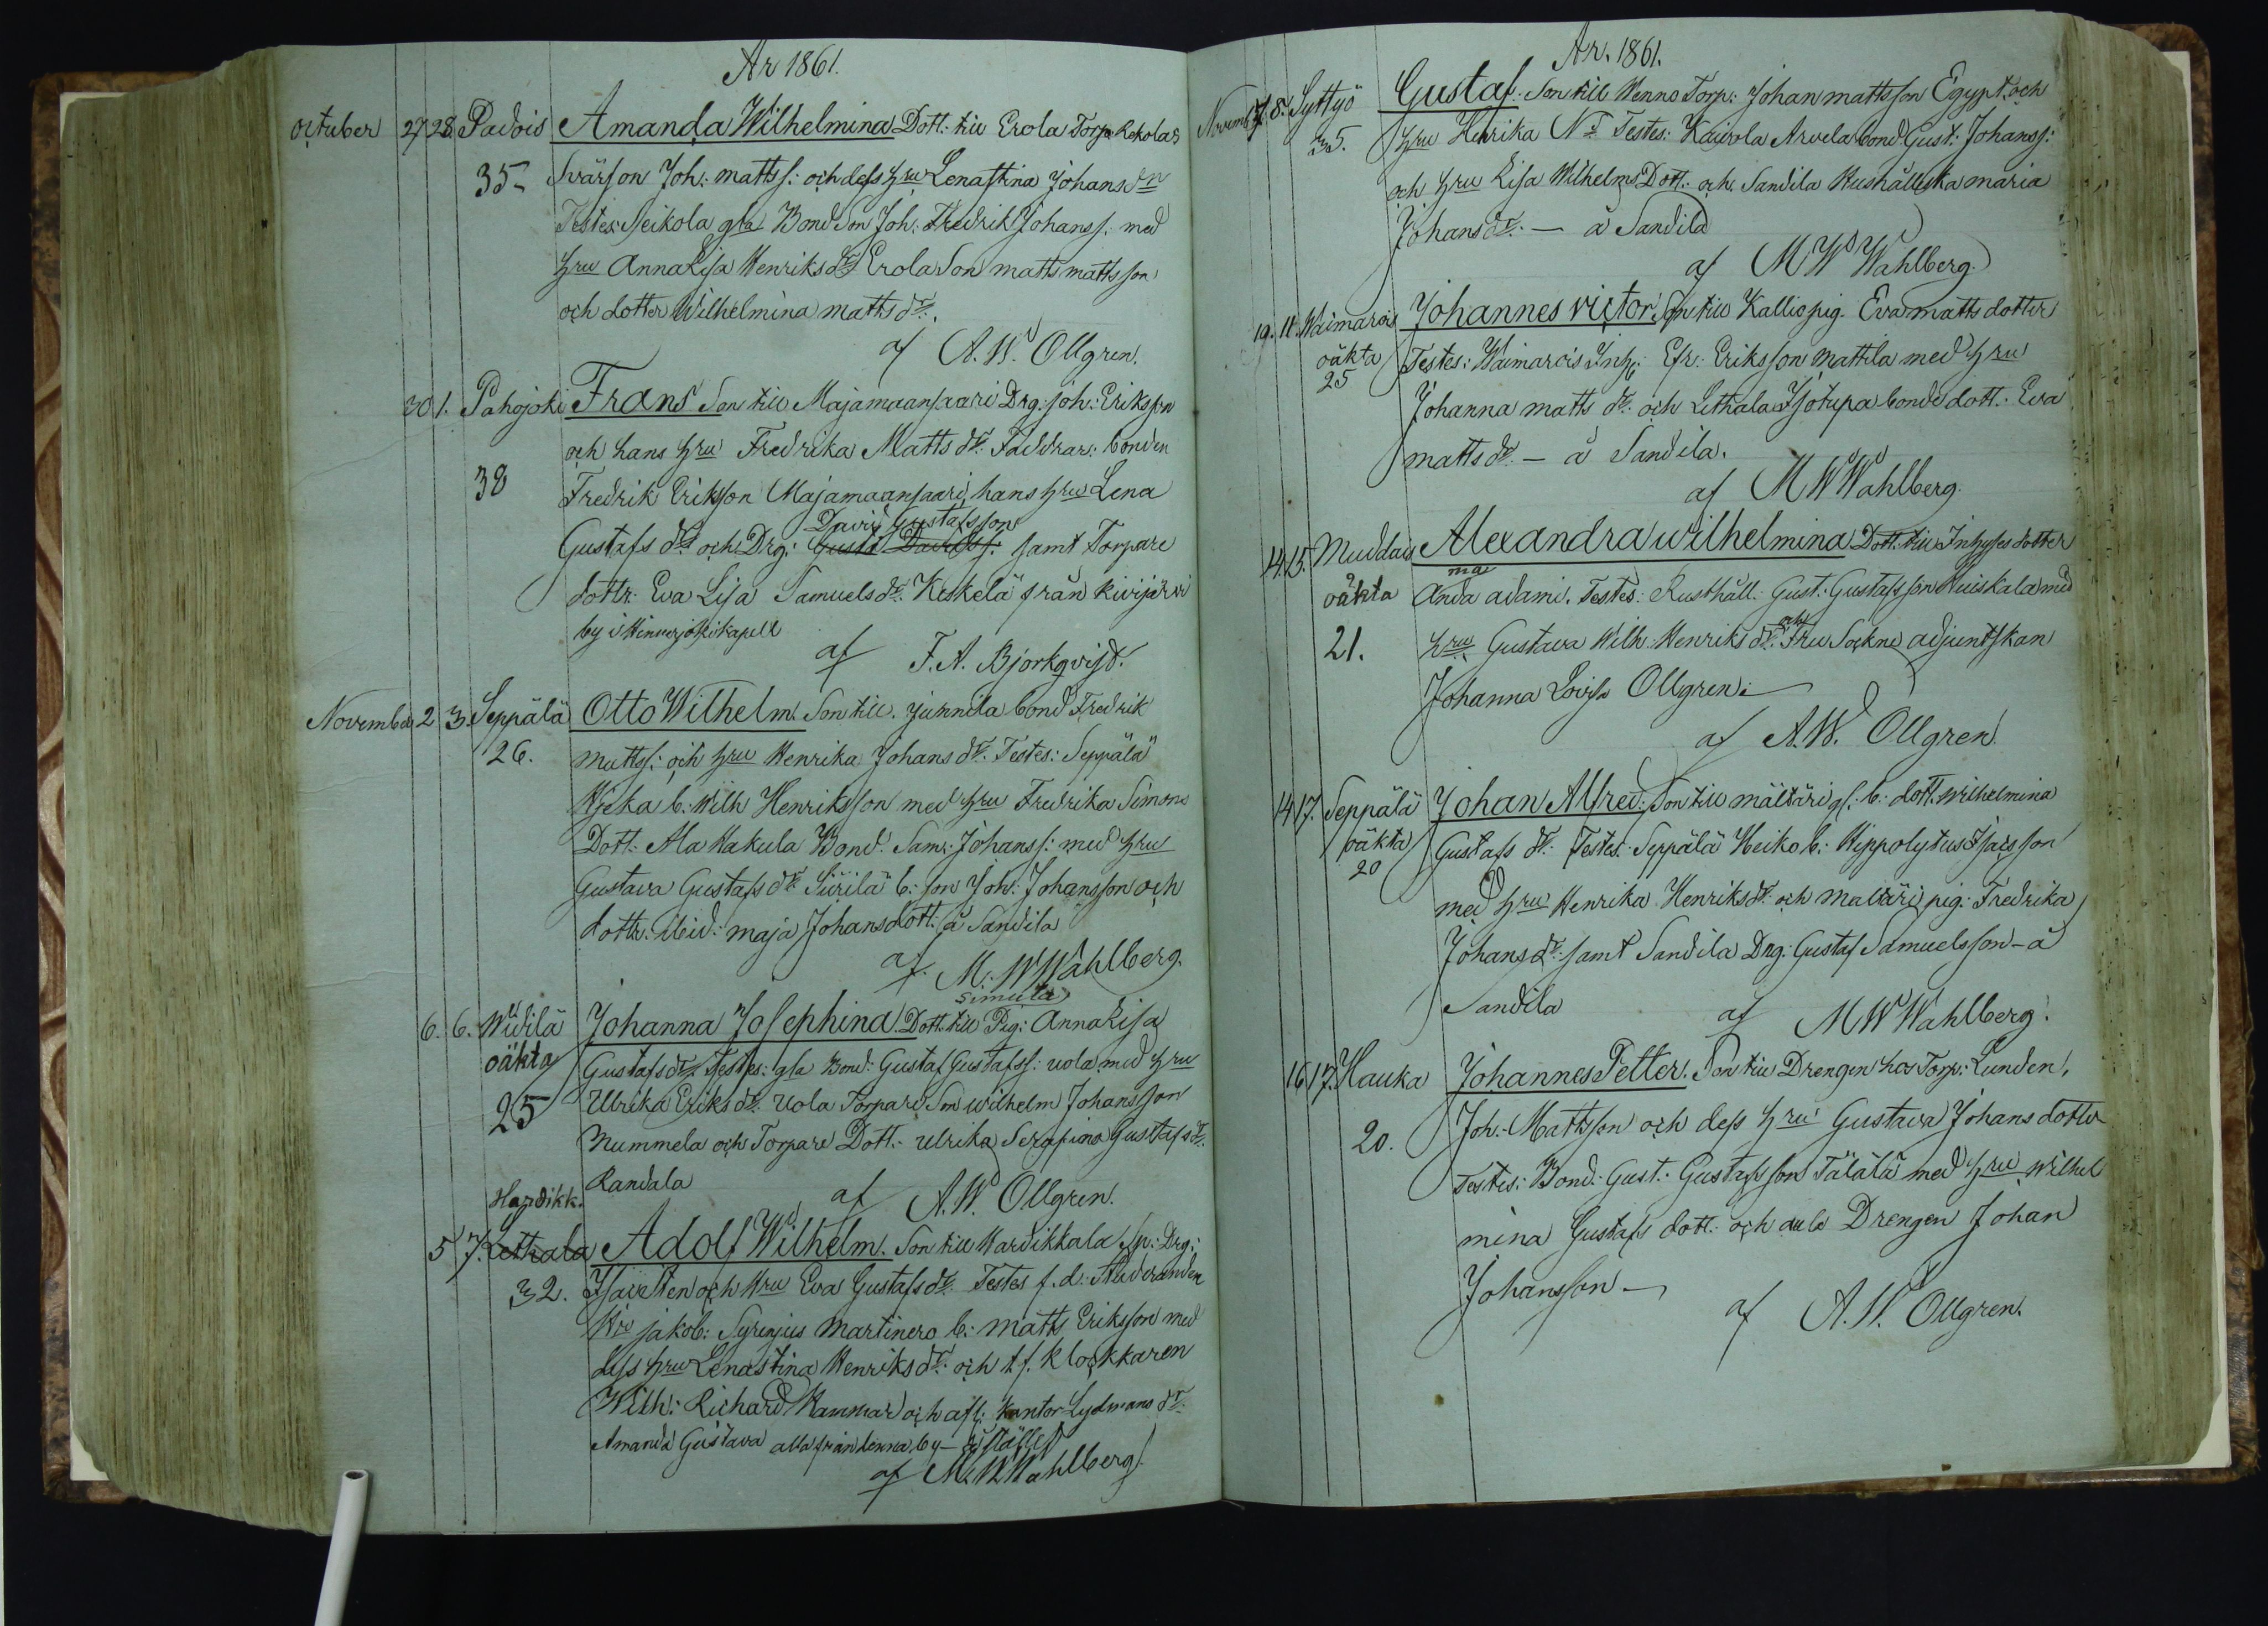 År 1861.
October 27 28. Padois Amanda Wilhelmina Dott: till Erola Torp. Rekolas
35 Svärson Joh: Matts s: och dess hru Lenastina Johans dr
Testes: Seikola gla Bond Son Joh: Fredrik Johans s. med
hru Anna Lisa Henriks dr Erola Son matts matts son
och dotter Wilhelmina matts dr.
af A. W. Ollgren.
30 1. Pahojoki Frans Son till Majamaansaari Drg: joh: Eriksson
och hans hru Fredrika Matts dr: Faddrar: bonden
38 Fredrik Eriksson Majamaansaari, hans hru Lena
David Gustafsson
Gustafs dr och Drg: Gust: Davidss: samt Torpare
dottr. Eva Lisa Samuels dr. Keskelä från Kivijärvi
by i Hinnerjoki kapell
af F. A. Björkqvist.
November 2 3. Seppälä Otto Wilhelm. Son till Junnila bond Fredrik
26. Matts s: och hru Henrika Johans dr. Testes: Seppälä
b: Wilh Henriksson med hru Fredrika Simons
Dott: Ala Kakula Bond: Sam: Johans s: med hru
Gustava Gustafs dr. Siirilä b: son Joh: Johansson och
dottr. Maja Johans dott. å Sandila
af M. W Wahlberg.
Simula
6. 6. Widilä Johanna Josephina Dott. till Pig: Anna Lisa
oäkta Gustafs dr. Testes: gla Bond: Gustaf Gustafss: Uola med hru
25 Ulrika Eriks dr. Uola Torpare Son Wilhelm Johansson
Nummela och Torpare Dott: Ulrika Serafina Gustafs dr.
Randala
af A. W. Ollgren.
Hardikk.
5 7. Lethala Adolf Wilhelm. Son till Hardikkala Sp: Drg:
32. och Hru Eva Gustafs dr. Testes f.d.
jakob: Syrenjus Martinero b: matts Eriksson med
dess hru Lenastina Henriks dr: och t.f. klockkaren
Wilh: Richard Hammar och afl: kantor Lydmans dr.
Amanda Gustava alla från denna by
af M. W Wahlberg.
År. 1861.
Novemb 7. 8. Syttyö Gustaf. Son till Menno Torp: Johan mattsson Egypt. och
35. hru Henrika Testes: Kaivola Arvela bond Gust: Johans s:
och hru Lisa Wilhelms Dott: och Sandila Rushålleska maria
Johans dr. — å Sandila
af M W Wahlberg.
19. 11. Waimarois Johannes Victor. Son till Kallio pig. Eva matts dotter
oäkta Testes: Waimarois Inh: Efr: Eriksson Mattila med hru
25
Johanna matts dr: och Lethala Isotupa bonde dott. Eva
matts dr. — å Sandila.
af M W Wahlberg.
14. 15. Muddais Alexandra Wilhelmina Dott: till Inhyses dotter
ma
oäkta Anda Adami. Testes: Rusthåll. Gust: Gustafsson Huiskala med
och
21. hru Gustava Wilh: Henriks dr: Fru Sockne adjunktskan
Johanna Lovisa Ollgren.
af A. W. Ollgren.
14 17. Seppälä Johan Alfred. Son till mältäri gl: b: dott. Wilhelmina
oäkta Gustafs dr. Testes: Seppälä Heiko b: Hippolytus Isacsson
20
med hru Henrika Henriks dr och Maltäri pig: Fredrika
Johans dr. samt Sandila Drg. Gustaf Samuelsson — å
Sandila
af M W Wahlberg.
16 17. Hauka Johannes Petter. Son till Drengen hos Torp. Lunden,
20. Joh: Mattsson och dess hru Gustava Johans dotter
Testes: Bond. Gust: Gustafsson Tälälä med hru Wilhel
mina Gustafs dott: och Drengen Johan
Johansson —
af A. W. Ollgren.